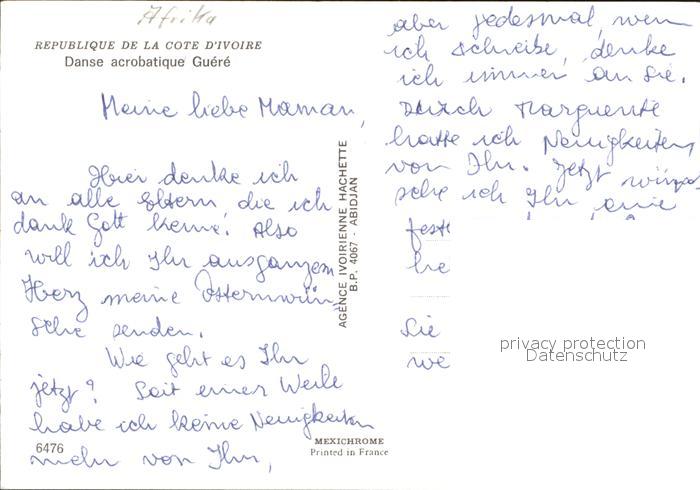 Afrika
REPUBLIQUE DE LA COTE D'IVOIRE
Danse acrobatique Guéré
Meine liebe Maman,
Hier denke ich
an alle Eltern, die ich
dank Gott kenne! Also
will ich Ihr aus ganzem
Herz meine Osternwün-
sche senden.
Wie geht es Ihr
jetzt? Seit einer Weile
habe ich keine Neuigkeiten
mehr von Ihr,
6476
AGENCE IVOIRIENNE HACHETTE
B.P. 4067 - ABIDJAN
MEXICHROME
Printed in France
aber jedesmal, wenn
ich schreibe, denke
ich immer an Sie.
Durch Marguerite
hatte ich Neuigkeiten
von Ihr. Jetzt wün
sche ich Ihr eine
fest
he
Sie
we
privacy protection
Datenschutz